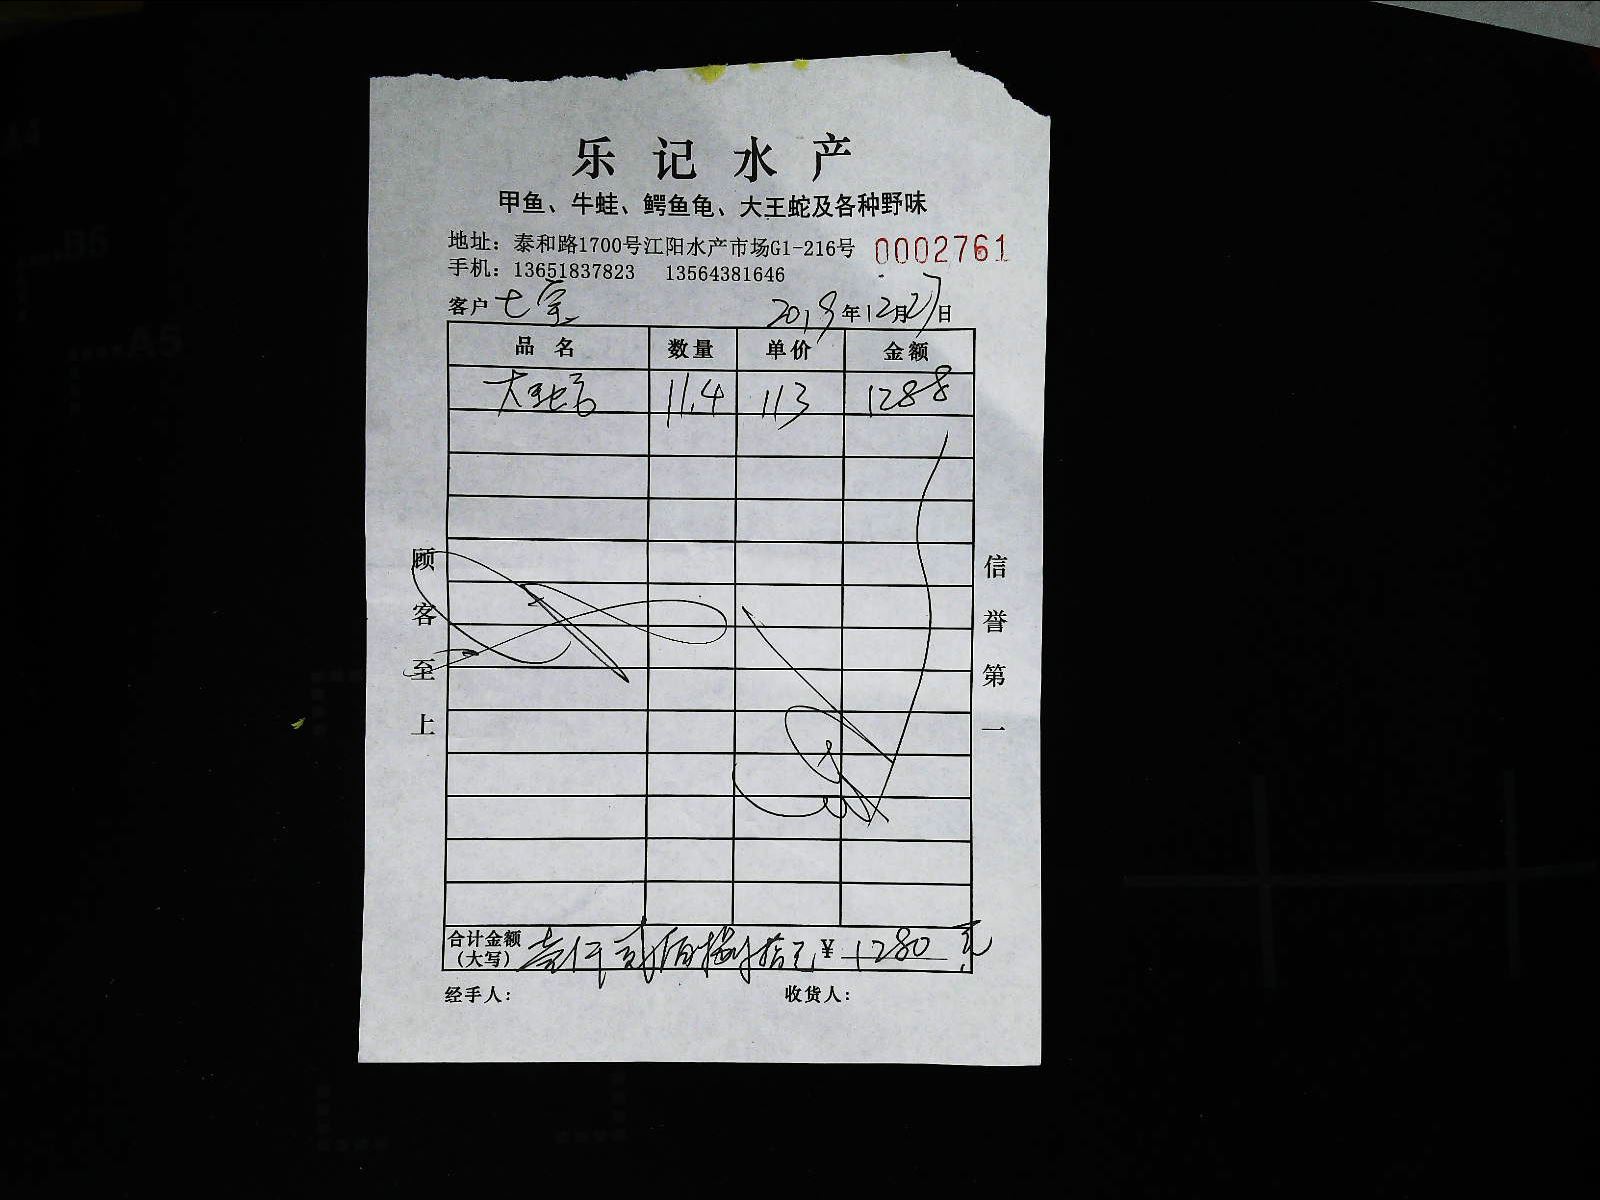 乐记水产
甲鱼、牛蛙、鳄鱼龟、大王蛇及各种野味
地址：泰和路1700号江阳水产市场G1-216号 0002761
手机：13651837823 13564381646
客户 七宗 2019年12月27日
品名 数量 单价 金额
大王 11.4 113 1288
顾客至上
信誉第一
合计金额（大写） 壹仟贰佰捌拾元 ￥1280元
经手人： 收货人：